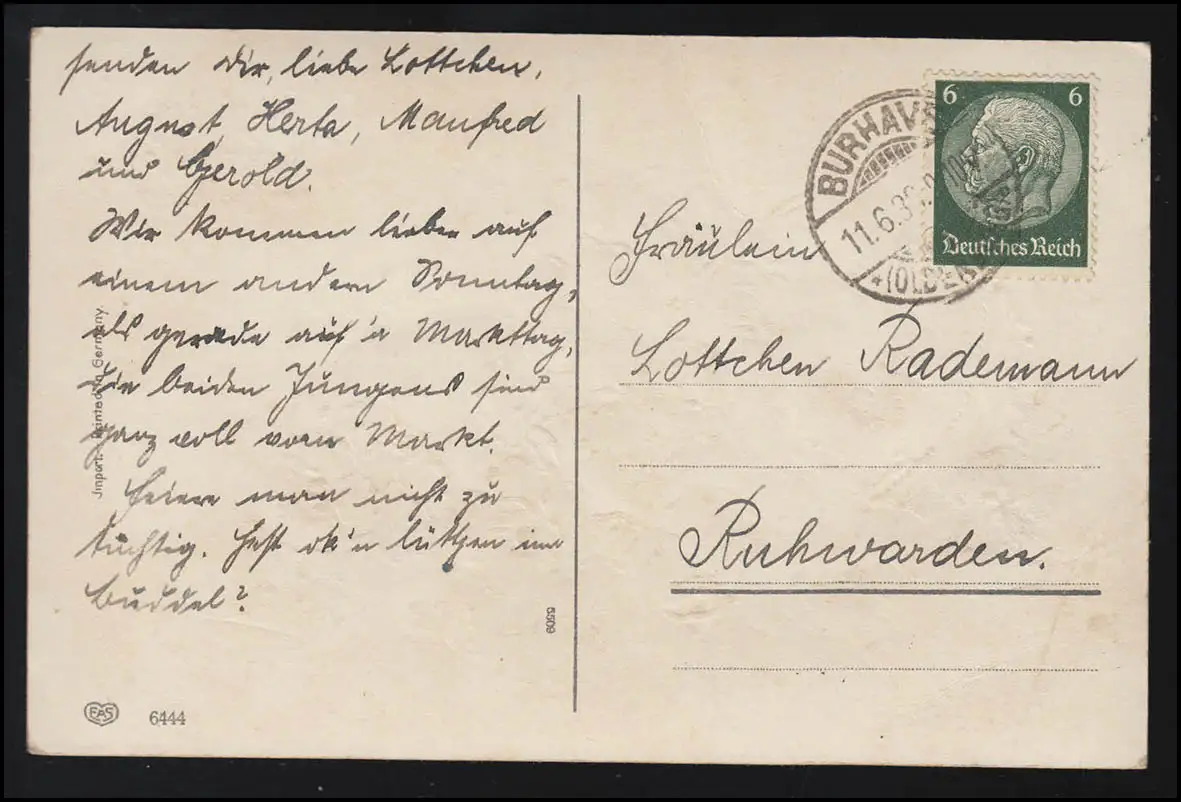 senden Dir, liebe Lottchen,
August, Herta, Manfred
und Gerold.
Wir kommen lieber auf
einem andern Sonntag,
als gerade auf'n Markttag,
die beiden Jungens sind
ganz voll vom Markt.
Feiere man nicht zu
tüchtig. Hest ok'n lüttjen inne
Buddel?
Import. Printed in Germany.
EAS
6444
5509
BURHAVE
11.6.3
(OLDENB
6 6
Deutsches Reich
Fräulein
Lottchen Rademann
Ruhwarden.